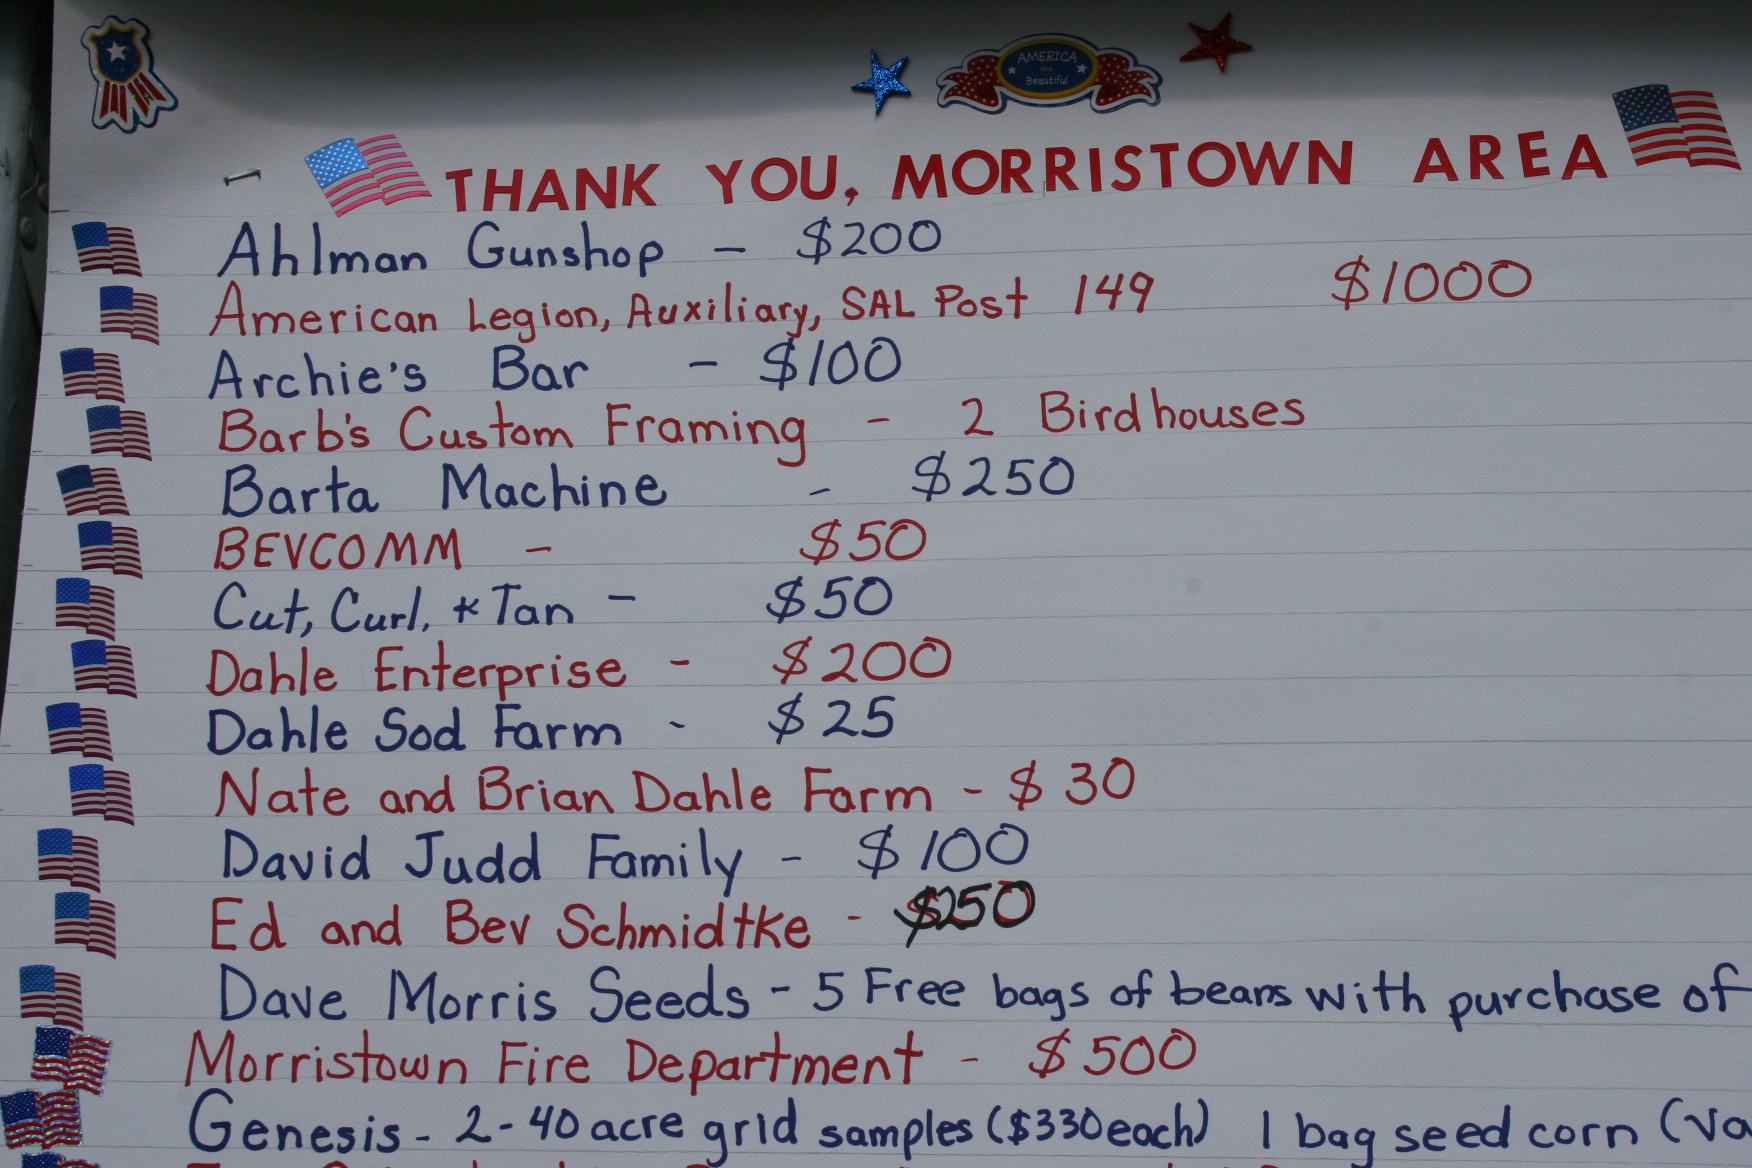 AMERICA
the
Beautiful
THANK YOU, MORRISTOWN AREA
Ahlman Gunshop - $200
American Legion, Auxiliary, SAL Post 149 $1000
Archie's Bar - $100
Barb's Custom Framing - 2 Birdhouses
Barta Machine - $250
BEVCOMM - $50
Cut, Curl, & Tan - $50
Dahle Enterprise - $200
Dahle Sod Farm - $25
Nate and Brian Dahle Farm - $30
David Judd Family - $100
Ed and Bev Schmidtke - $250
Dave Morris Seeds - 5 Free bags of beans with purchase of
Morristown Fire Department - $500
Genesis - 2-40 acre grid samples ($330 each) 1 bag seed corn (Va